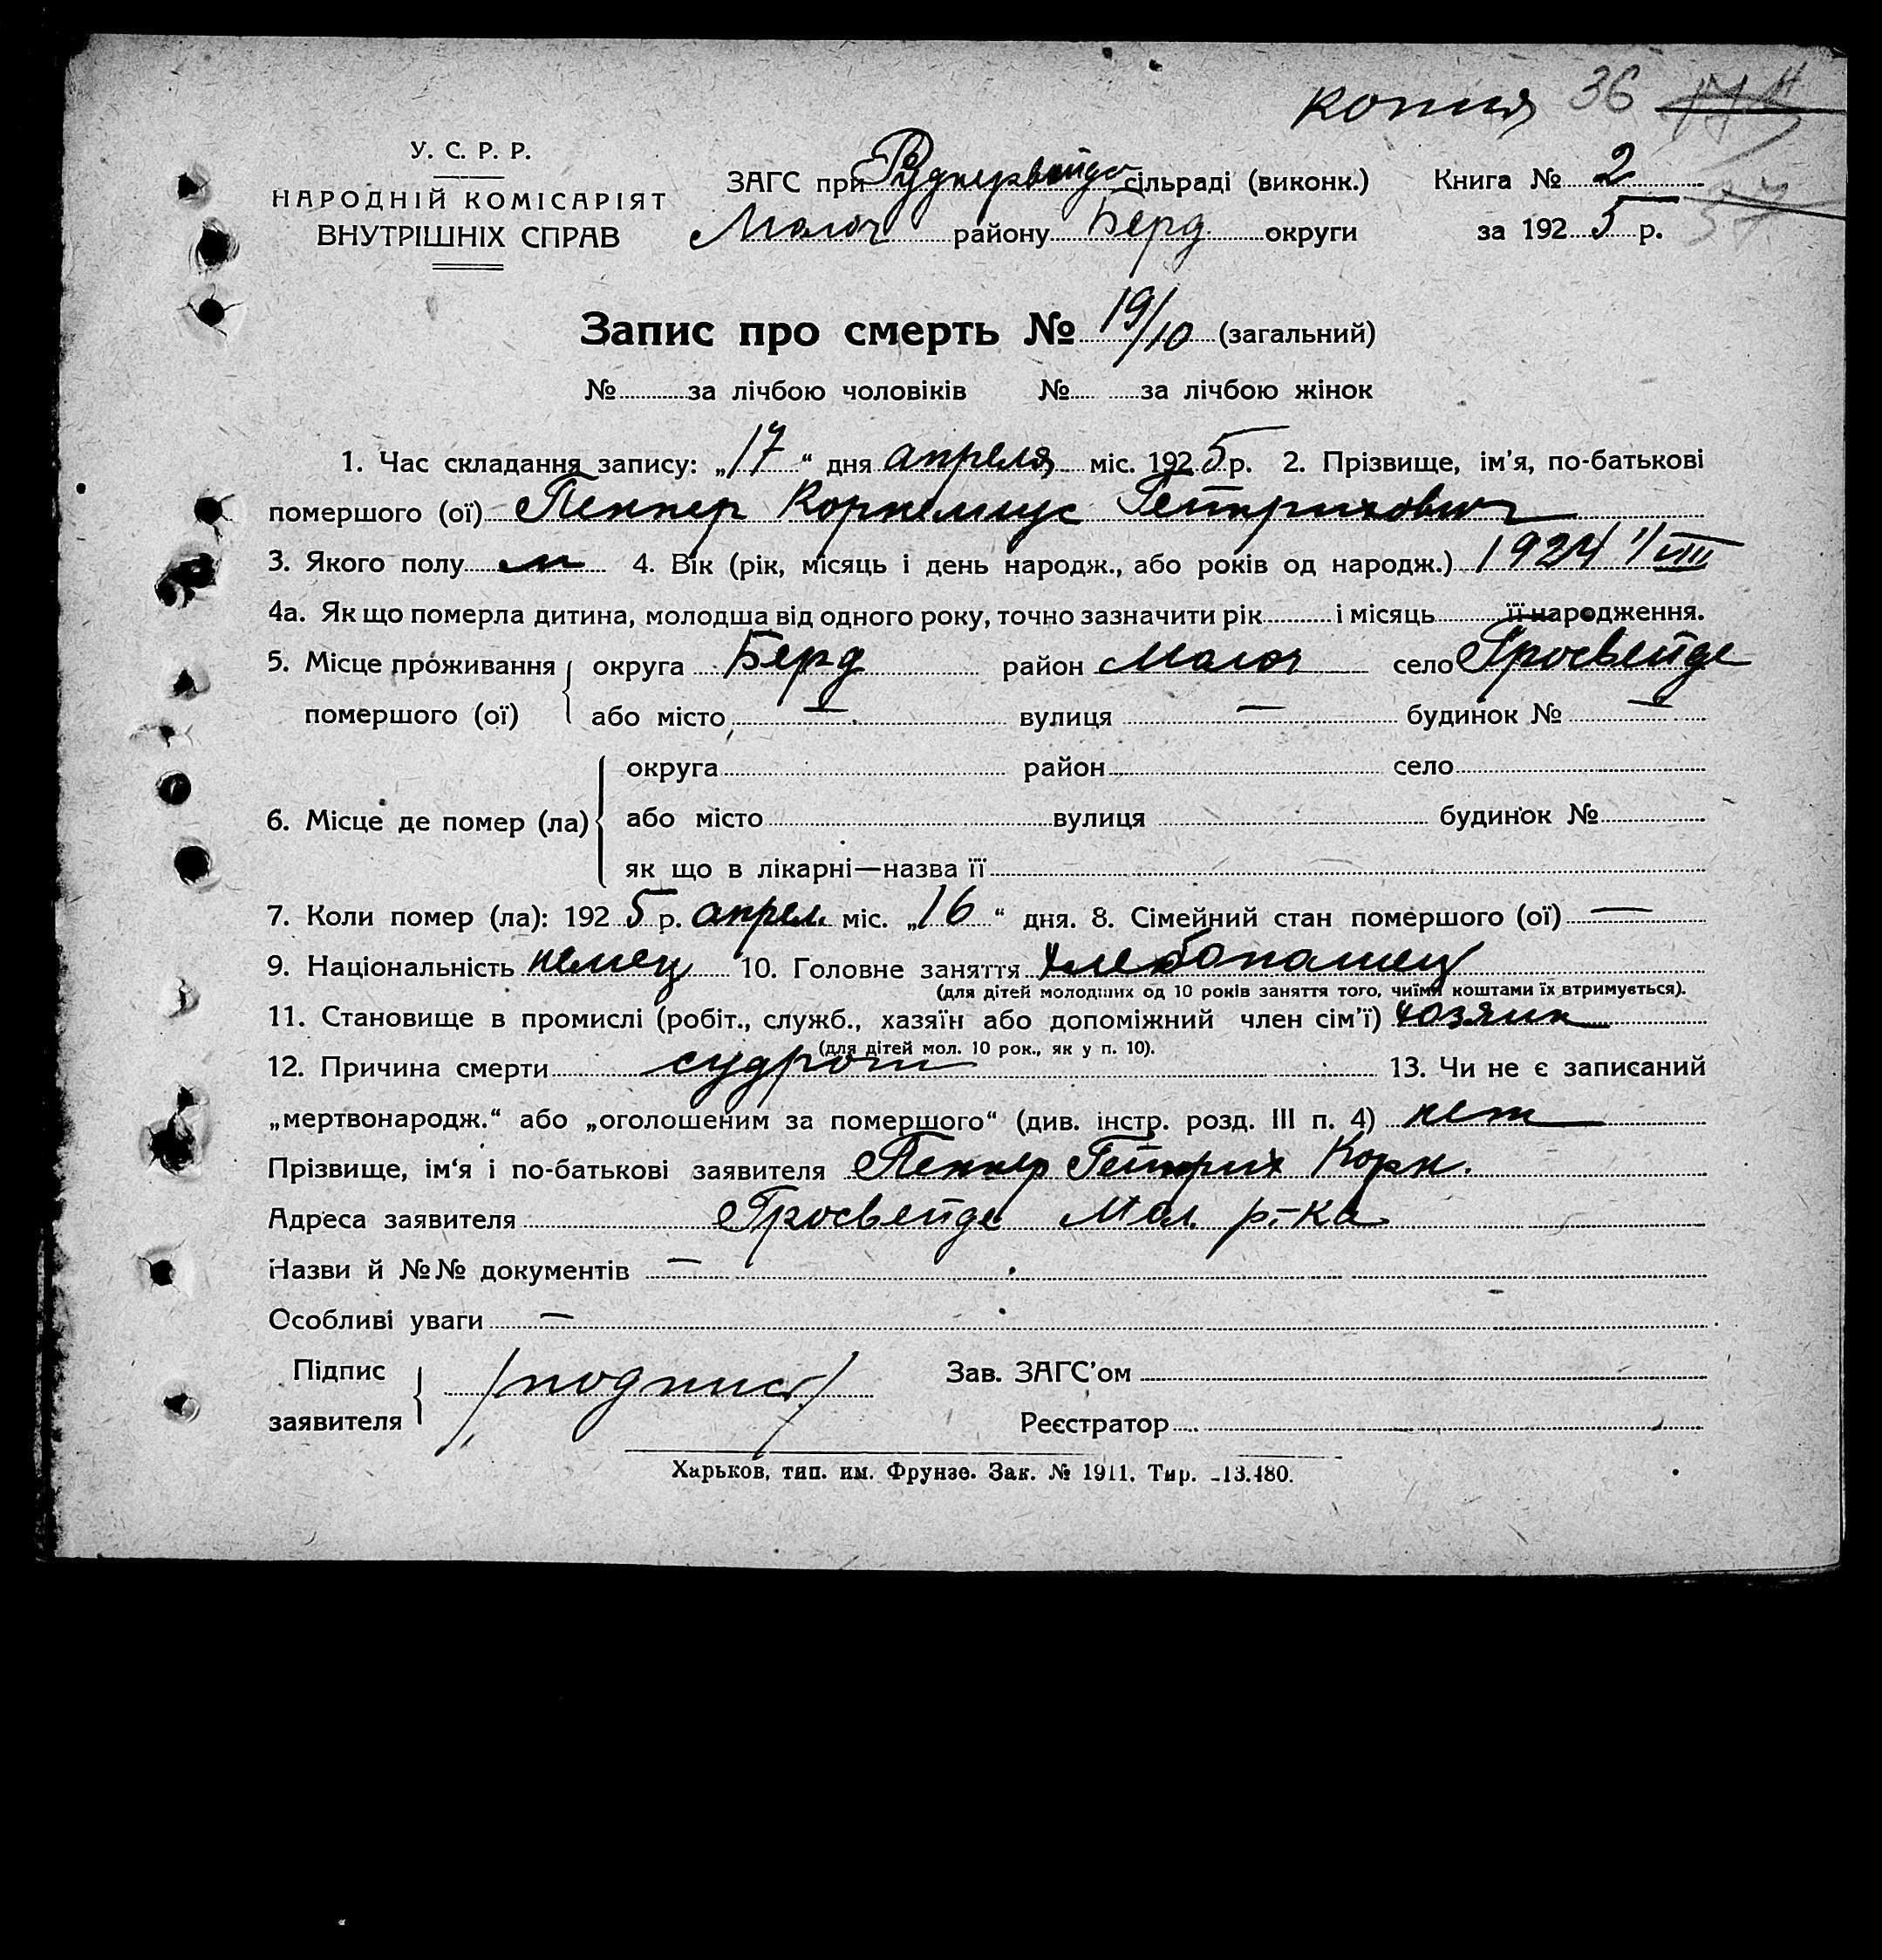 копия 36
У. С. Р. Р.
НАРОДНІЙ КОМІСАРІЯТ
ВНУТРІШНІХ СПРАВ
ЗАГС при Руднервейде сільраді (виконк.) Книга № 2
Молоч району Берд. округи за 1925 р. 37
Запис про смерть № 19/10 (загальний)
№ за лічбою чоловіків № за лічбою жінок
1. Час складання запису: „17“ дня апреля міс. 1925 р. 2. Прізвище, ім'я, по-батькові
помершого (ої) Пеннер Корнелиус Гейнрихович
3. Якого полу м 4. Вік (рік, місяць і день народж., або років од народж.) 1924 1/VIII
4а. Як що померла дитина, молодша від одного року, точно зазначити рік і місяць її народження.
5. Місце проживання округа Берд район Молоч село Гросвейде
помершого (ої) або місто — вулиця — будинок № —
округа район село
6. Місце де помер (ла) або місто вулиця будинок №
як що в лікарні—назва її
7. Коли помер (ла): 1925 р. апрел. міс. „16“ дня. 8. Сімейний стан помершого (ої) —
9. Національність немец 10. Головне заняття хлебопашец
(для дітей молодших од 10 років заняття того, чиїми коштами їх втримується).
11. Становище в промислі (робіт., служб., хазяїн або допоміжний член сім'ї) хозяин
(для дітей мол. 10 рок., як у п. 10).
12. Причина смерти судроги 13. Чи не є записаний
„мертвонародж.“ або „оголошеним за помершого“ (див. інстр. розд. III п. 4) нет
Прізвище, ім'я і по-батькові заявителя Пеннер Гейнрих Корн.
Адреса заявителя Гросвейде Мол. р-ка
Назви й №№ документів —
Особливі уваги —
Підпис /подпись/ Зав. ЗАГС'ом
заявителя Реєстратор
Харьков, тип. им. Фрунзе. Зак. № 1911. Тир. -13.480.